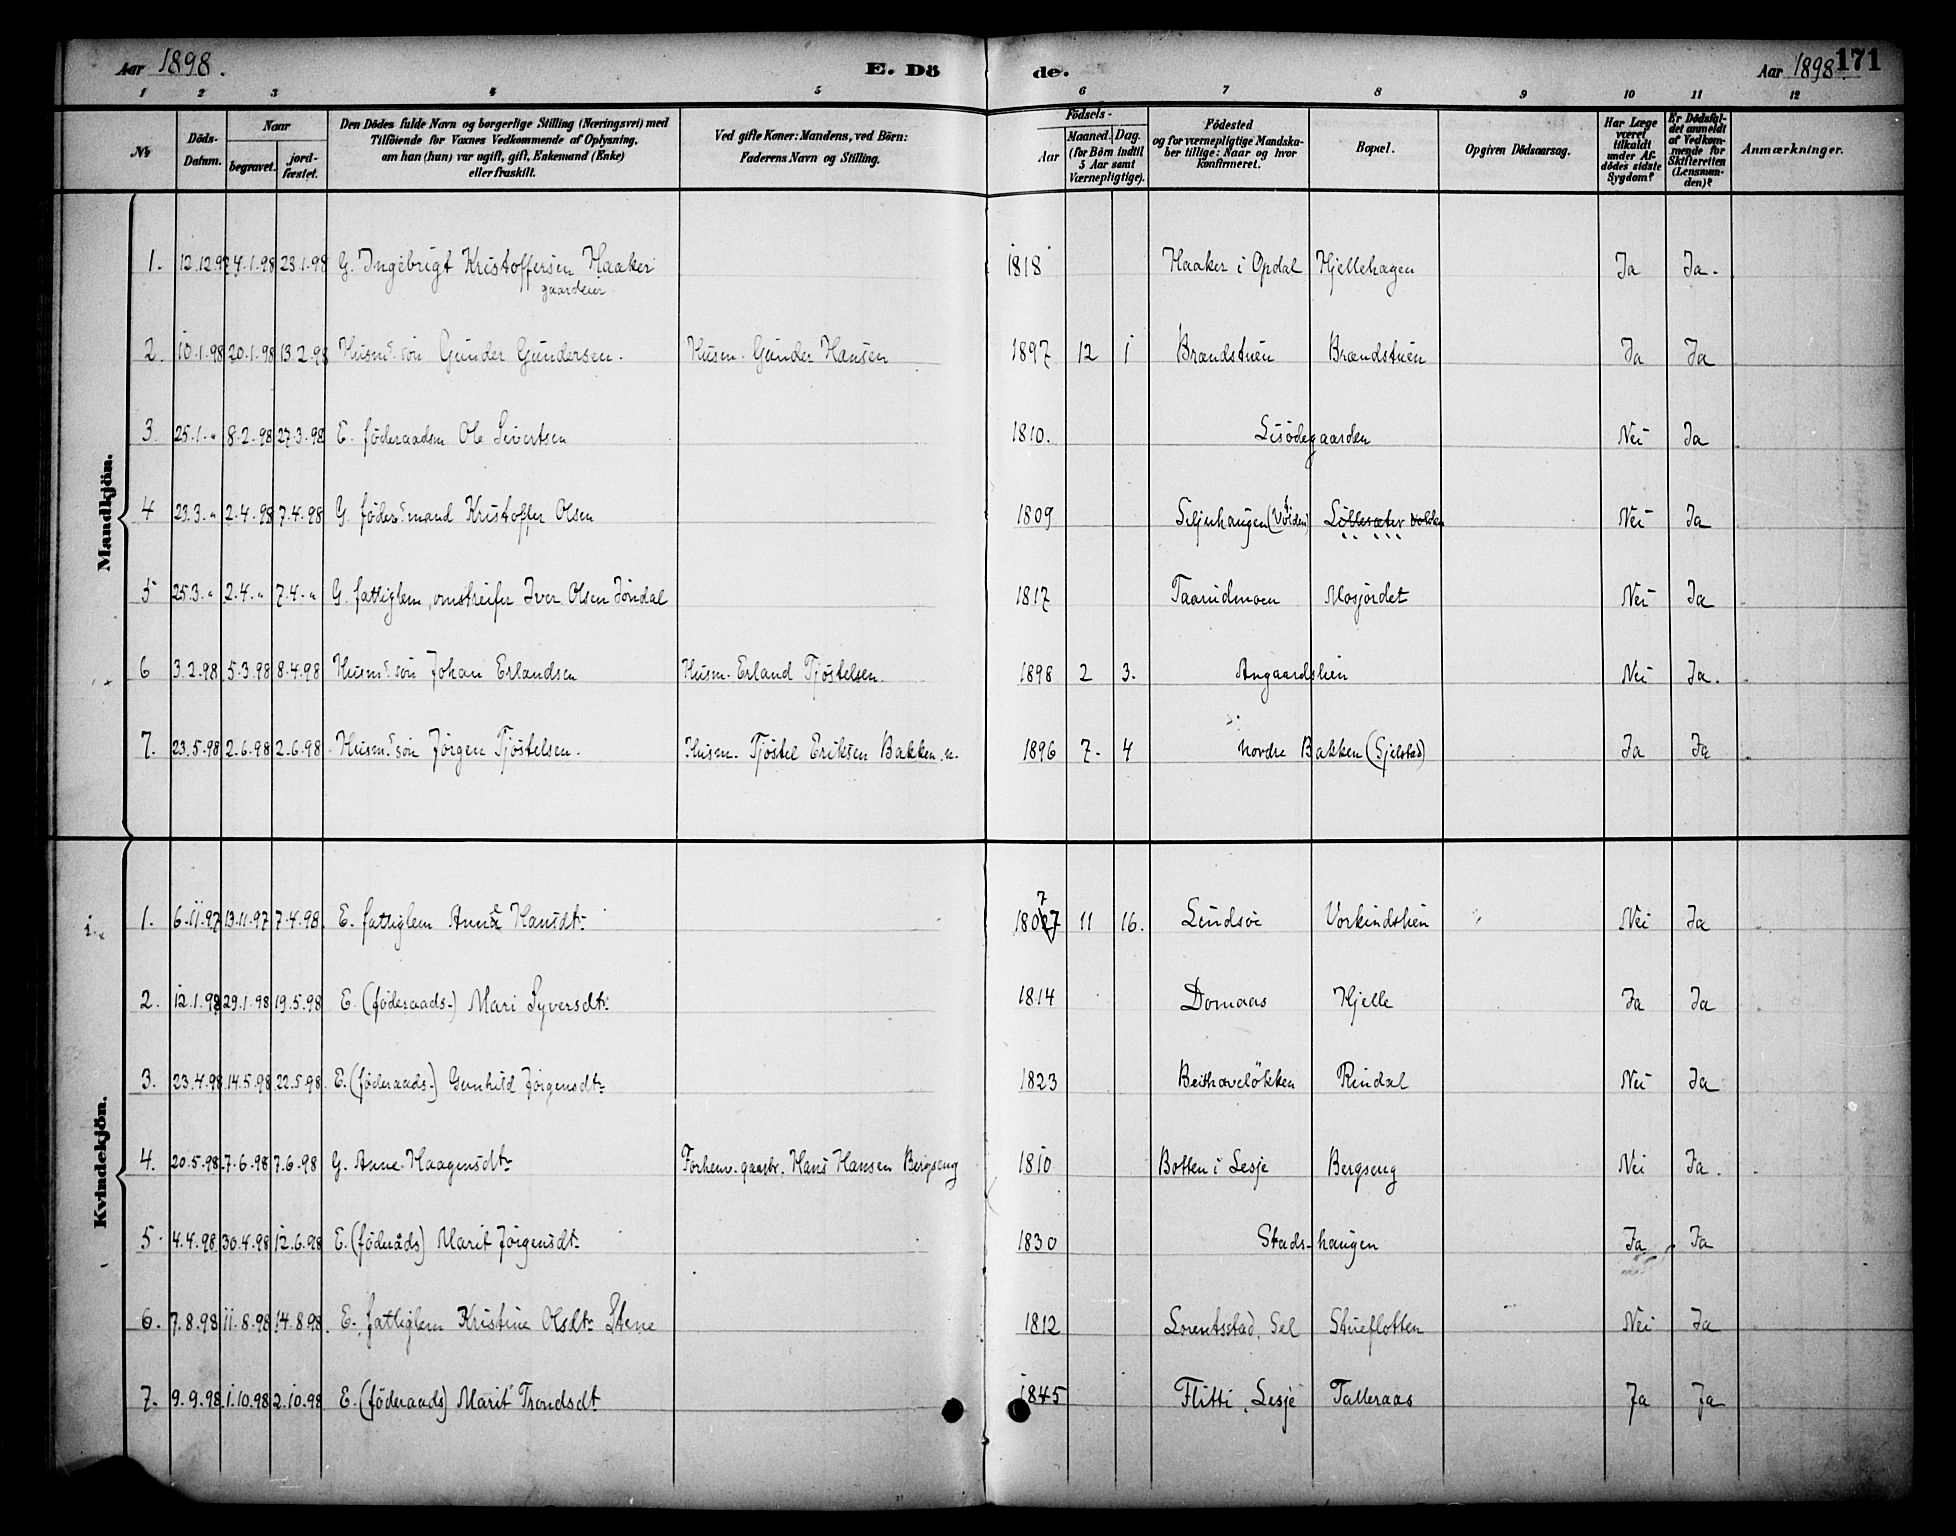 Aar 1898. E. Dö de. Aar 1898. 171
1 2 3 4 5 6 7 8 9 10 11 12
Nr. Döds-Datum. Naar begravet. jordfæstet. Den Dödes fulde Navn og borgerlige Stilling (Næringsvei) med Tilföiende for Voxnes Vedkommende af Oplysning, om han (hun) var ugift, gift, Enkemand (Enke) eller fraskilt. Ved gifte Koner: Mandens, ved Börn: Faderens Navn og Stilling. Födsels- Aar Maaned. Dag. (for Börn indtil 5 Aar samt Værnepligtige). Födested og for værnepligtige Mandskaber tillige: Naar og hvor konfirmeret. Bopæl. Opgiven Dödsaarsag. Har Læge været tilkaldt under Afdödes sidste Sygdom? Er Dödsfaldet anmeldt af Vedkommende for Skifteretten (Lensmanden)? Anmærkninger.
Mandkjön.
1. 12.12.97 4.1.98 23.1.98 G. Ingebrigt Kristoffersen Haaker 1818 Haaker i Opdal Hjellehagen Ja Ja.
gaardeier
2. 10.1.98 20.1.98 13.2.98 Husms søn Gunder Gundersen. Husm. Gunder Hansen 1897 12 1 Brændstuen Brændstuen Ja Ja
3. 25.1.„ 8.2.98 27.3.98 E. føderaadsm Ole Sivertsen 1810. Lisødegaarden Nei Ja
4 23.3.„ 2.4.98 7.4.98 G. føders mand Kristoffer Olsen 1809 Siljuhaugen (Volden) Lillesæter Volden Nei Ja
5 25.3.„ 2.4.„ 7.4.„ G. fattiglem, omstreifer Iver Olsen Jöndal 1817 Taarudmoen Mosjordet Nei Ja
6 3.2.98 5.3.98 8.4.98 Husms søn Johan Erlandsen Husm. Erland Tjöstelsen. 1898 2 3. Angaardslien Nei Ja.
7. 23.5.98 2.6.98 2.6.98 Husms søn Jørgen Tjöstelsen. Husm. Tjöstel Eriksen Bakken n. 1896 7. 4 nordre Bakken (Gjelstad) Ja Ja
Kvindekjön.
1. 6.11.97 13.11.97 7.4.98. E. fattiglem Anne Hansdtr 1807 11 16. Lindsöe Vorkindslien Nei Ja
2. 12.1.98 29.1.98 19.5.98 E. (føderaads-) Mari Syversdtr 1814 Domaas Hjelle Ja Ja
3. 23.4.98 14.5.98 22.5.98 E. (føderaads-) Gunhild Jørgensdtr 1823 Rindal Nei Ja
4. 20.5.98. 7.6.98 7.6.98 G. Anne Haagensdtr Forhenv. gaardbr. Hans Hansen Bergseng 1810 Botten i Lesje Bergseng Nei Ja.
5 4.4.98 30.4.98 12.6.98 E. (føderåds) Marit Jørgensdtr 1830 Stads-haugen Ja Ja
6. 7.8.98 11.8.98 14.8.98. E. fattiglem Kristine Olsdtr Stene 1812 Lorentsstad, Sel Stueflotten Nei Ja
7. 9.9.98 1.10.98 2.10.98 E. (føderaads) Marit Trondsdtr 1845 Flitti, Lesje Talleraas Ja Ja